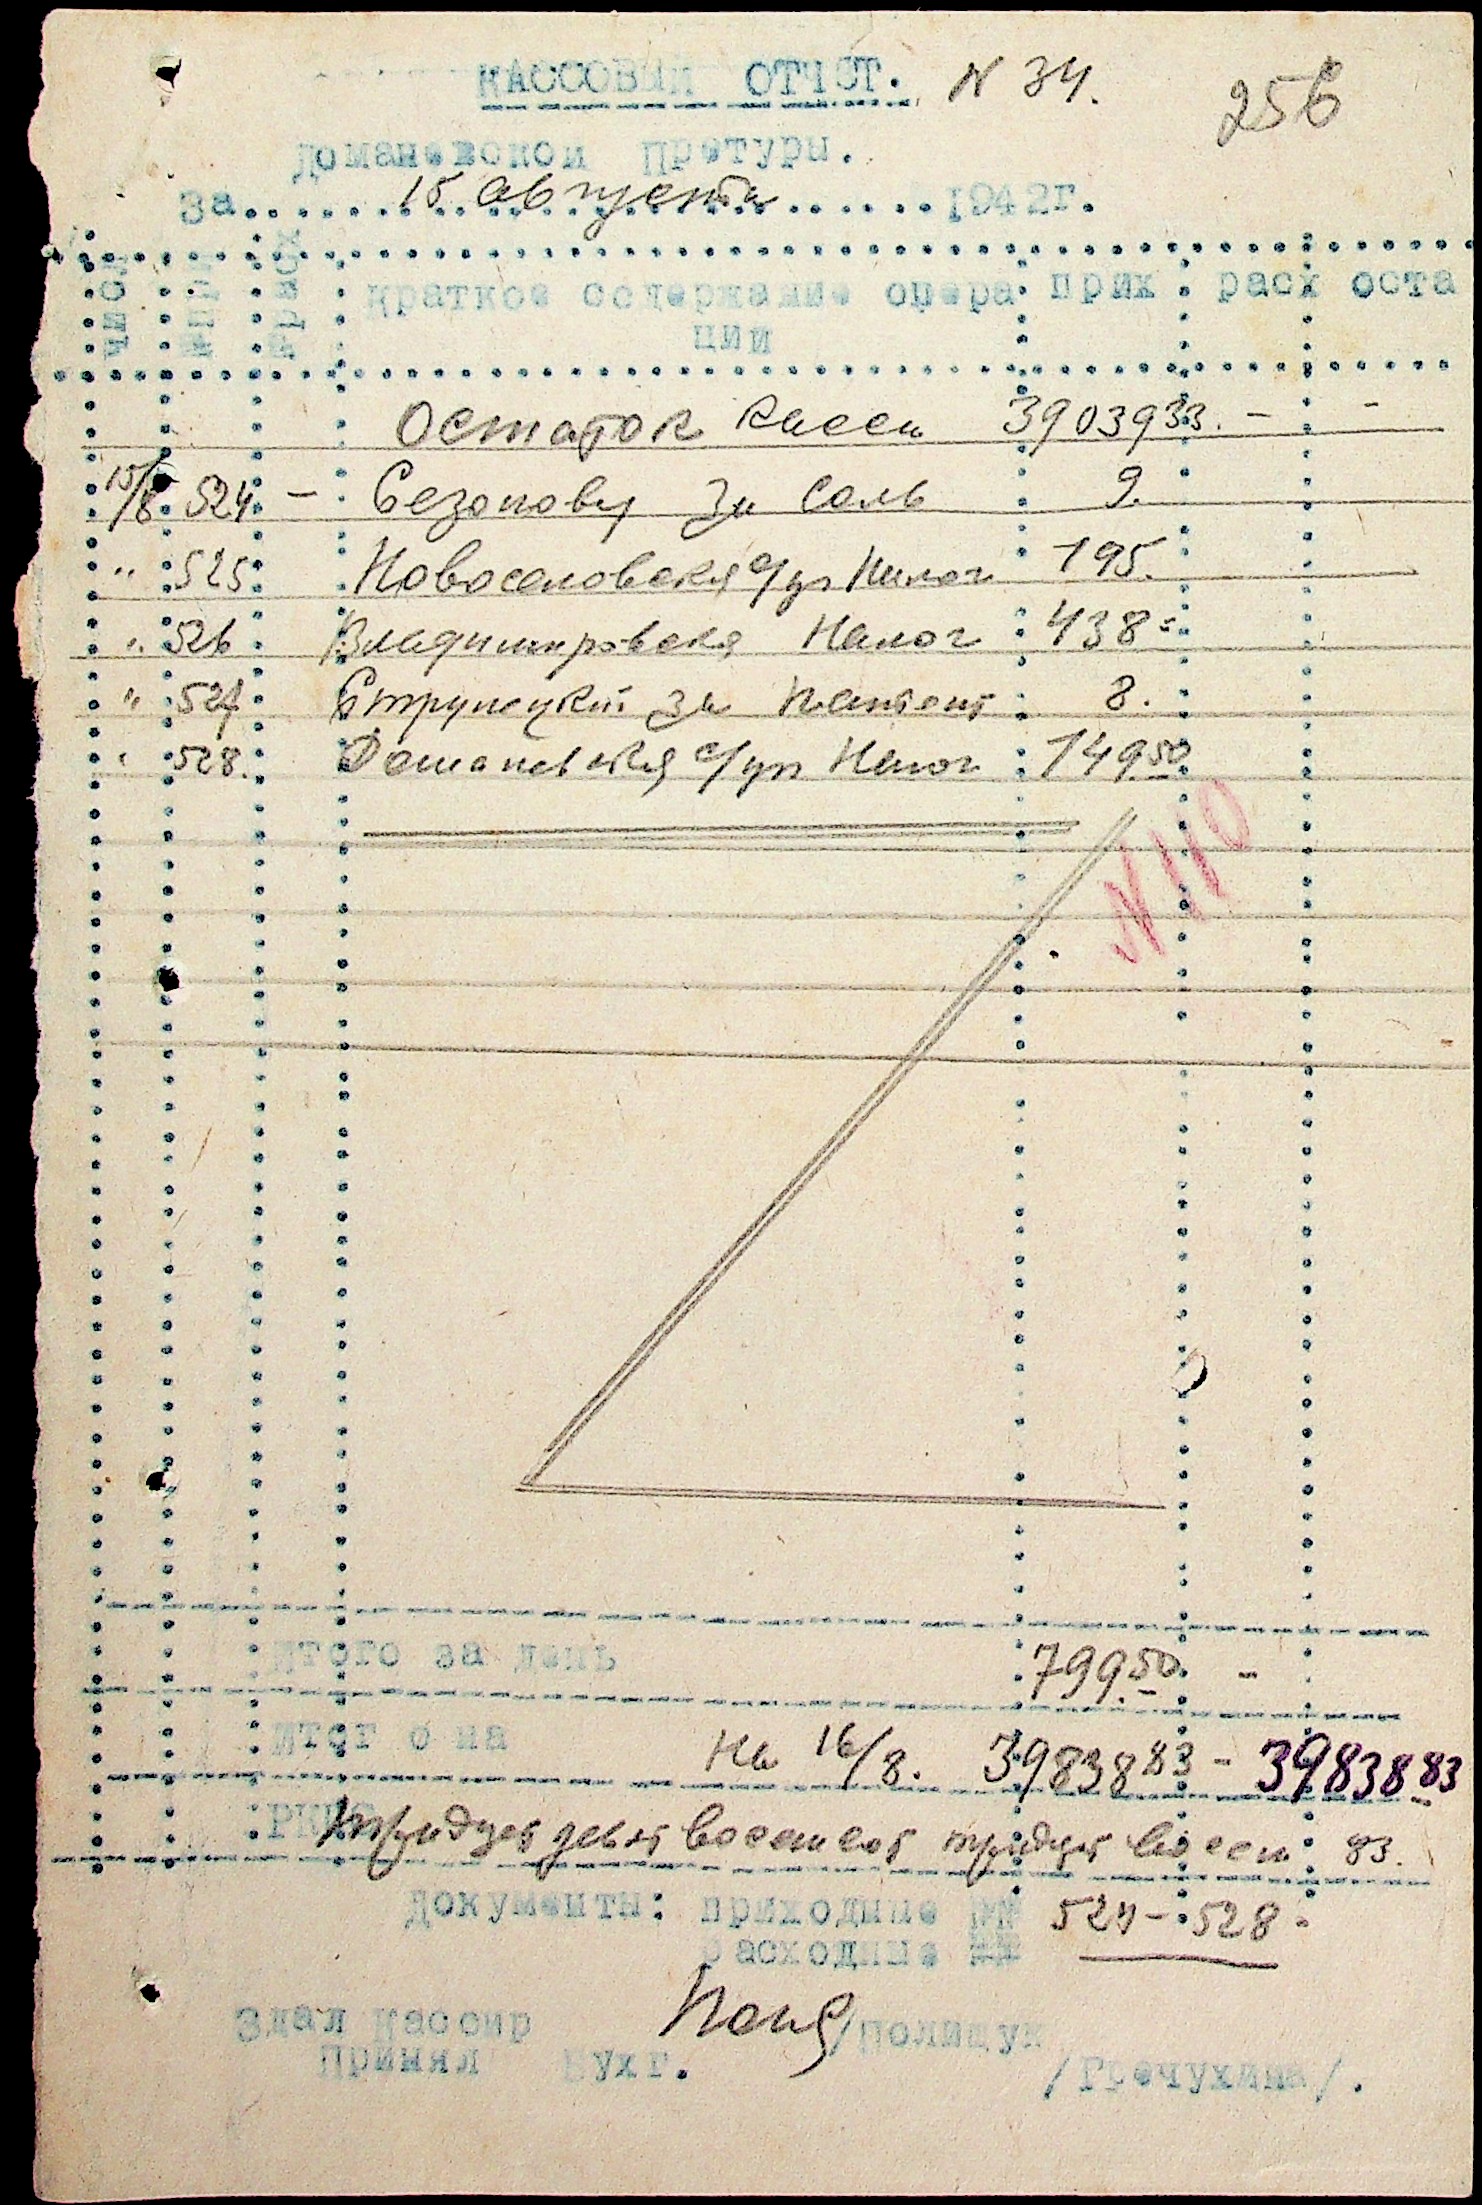 КАССОВЫЙ ОТЧЕТ. N 34.
256
Доманевской Претуры.
За 15 августа 1942г.
число
Краткое содержание опера прих расх оста
ции
Остаток кассы 3903933. - -
15/8 524 - Сезонову за соль 9.
" 525 Новоселовская с/уп Налог 195.
" 526 Владимировская Налог 438=
" 527 за патент 8.
" 528. Доманевская с/уп Налог 14950
N 110
Итого за день 79950. -
Итог о на На 16/8. 3983883 - 3983883
РКМС тридцать девять восемсот тридцать восем 83.
Документы: приходные №№ 524-528.
расходные №№
Здал Кассир /Полищук
Принял Бухг. /Гречухина/.